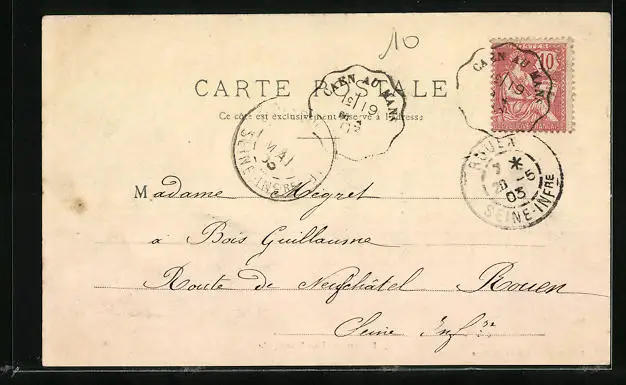 10
CARTE POSTALE
Ce côté est exclusivement réservé à l'adresse
POSTES
10
RÉPUBLIQUE FRANÇAISE
CAEN AU MANS
19
CAEN AU MANS
19
MAI
SEINE-INFRE
ROUEN
*
20 -5
03
SEINE-INFRE
Madame Mégret
à Bois Guillaume
Route de Neufchâtel Rouen
Seine Infre